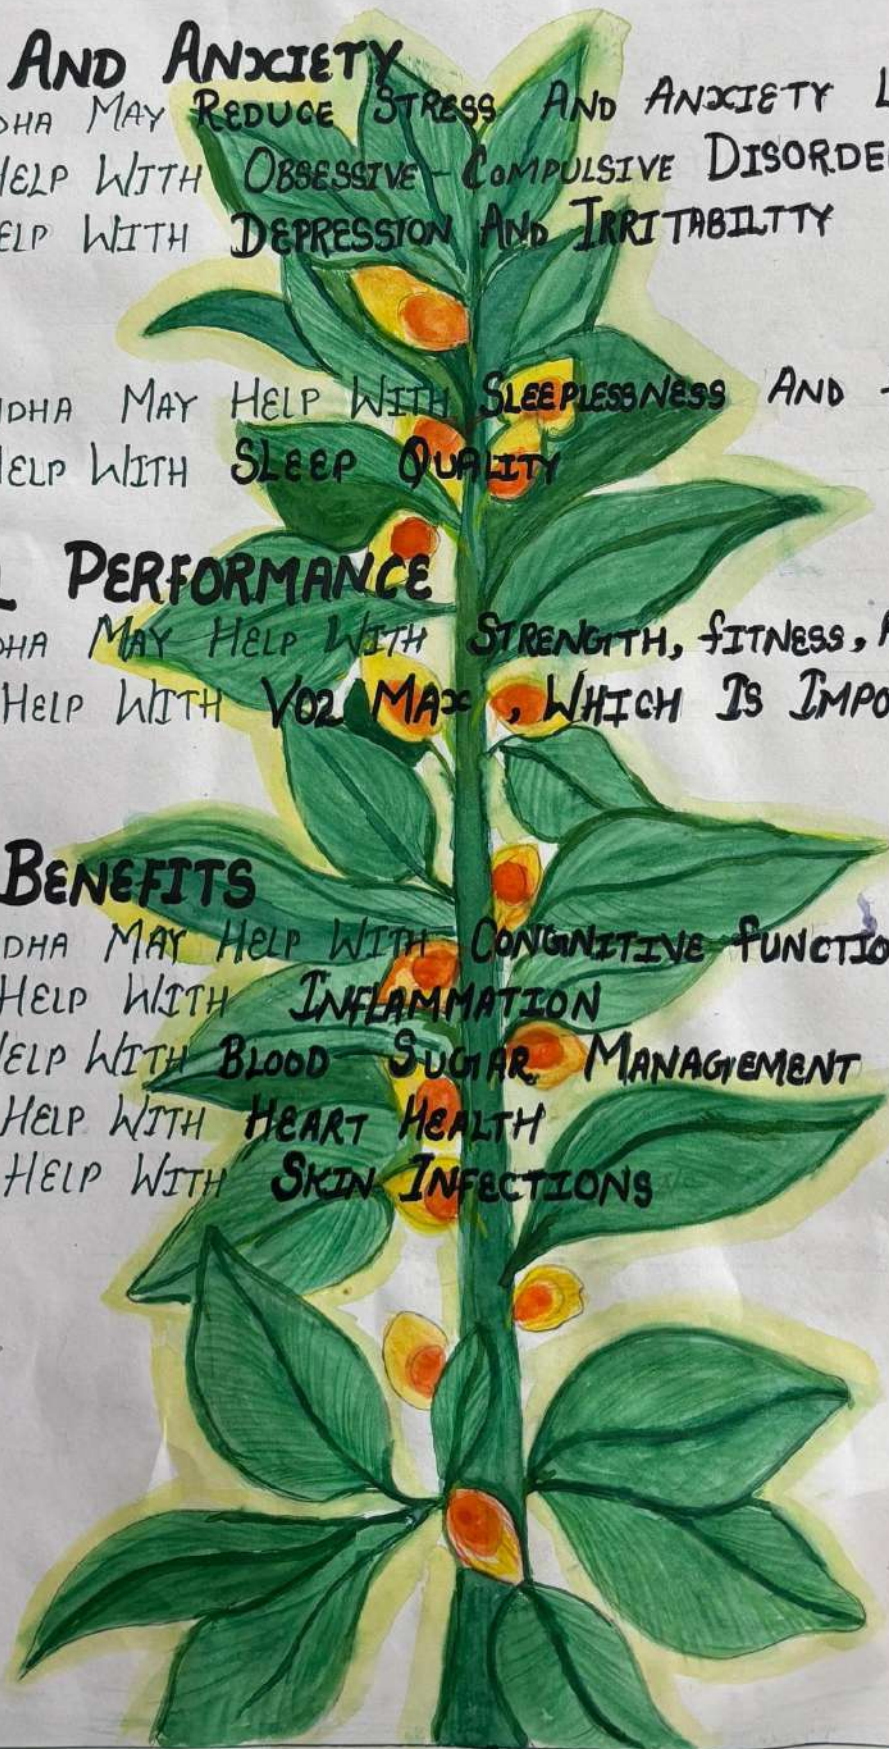 AND ANXIETY
DHA MAY REDUCE STRESS AND ANXIETY L
HELP WITH OBSESSIVE-COMPULSIVE DISORDE
ELP WITH DEPRESSION AND IRRITABILTTY
DHA MAY HELP WITH SLEEPLESSNESS AND
ELP WITH SLEEP QUALITY
L PERFORMANCE
DHA MAY HELP WITH STRENGTH, FITNESS,
HELP WITH VO2 MAX, WHICH IS IMPO
BENEFITS
DHA MAY HELP WITH CONGNITIVE FUNCTIO
HELP WITH INFLAMMATION
ELP WITH BLOOD SUGAR MANAGEMENT
HELP WITH HEART HEALTH
HELP WITH SKIN INFECTIONS